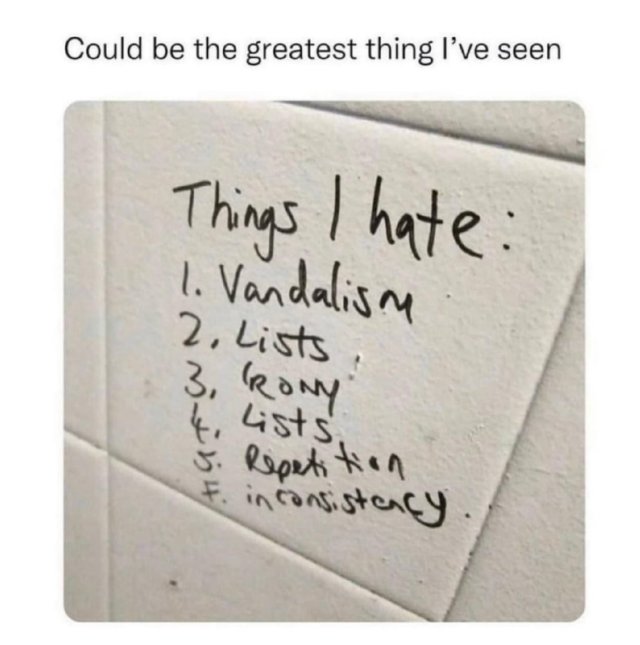 Could be the greatest thing I've seen
Things I hate:
1. Vandalism
2. Lists
3. IRONY
4. Lists
5. Repetition
F. inconsistency.